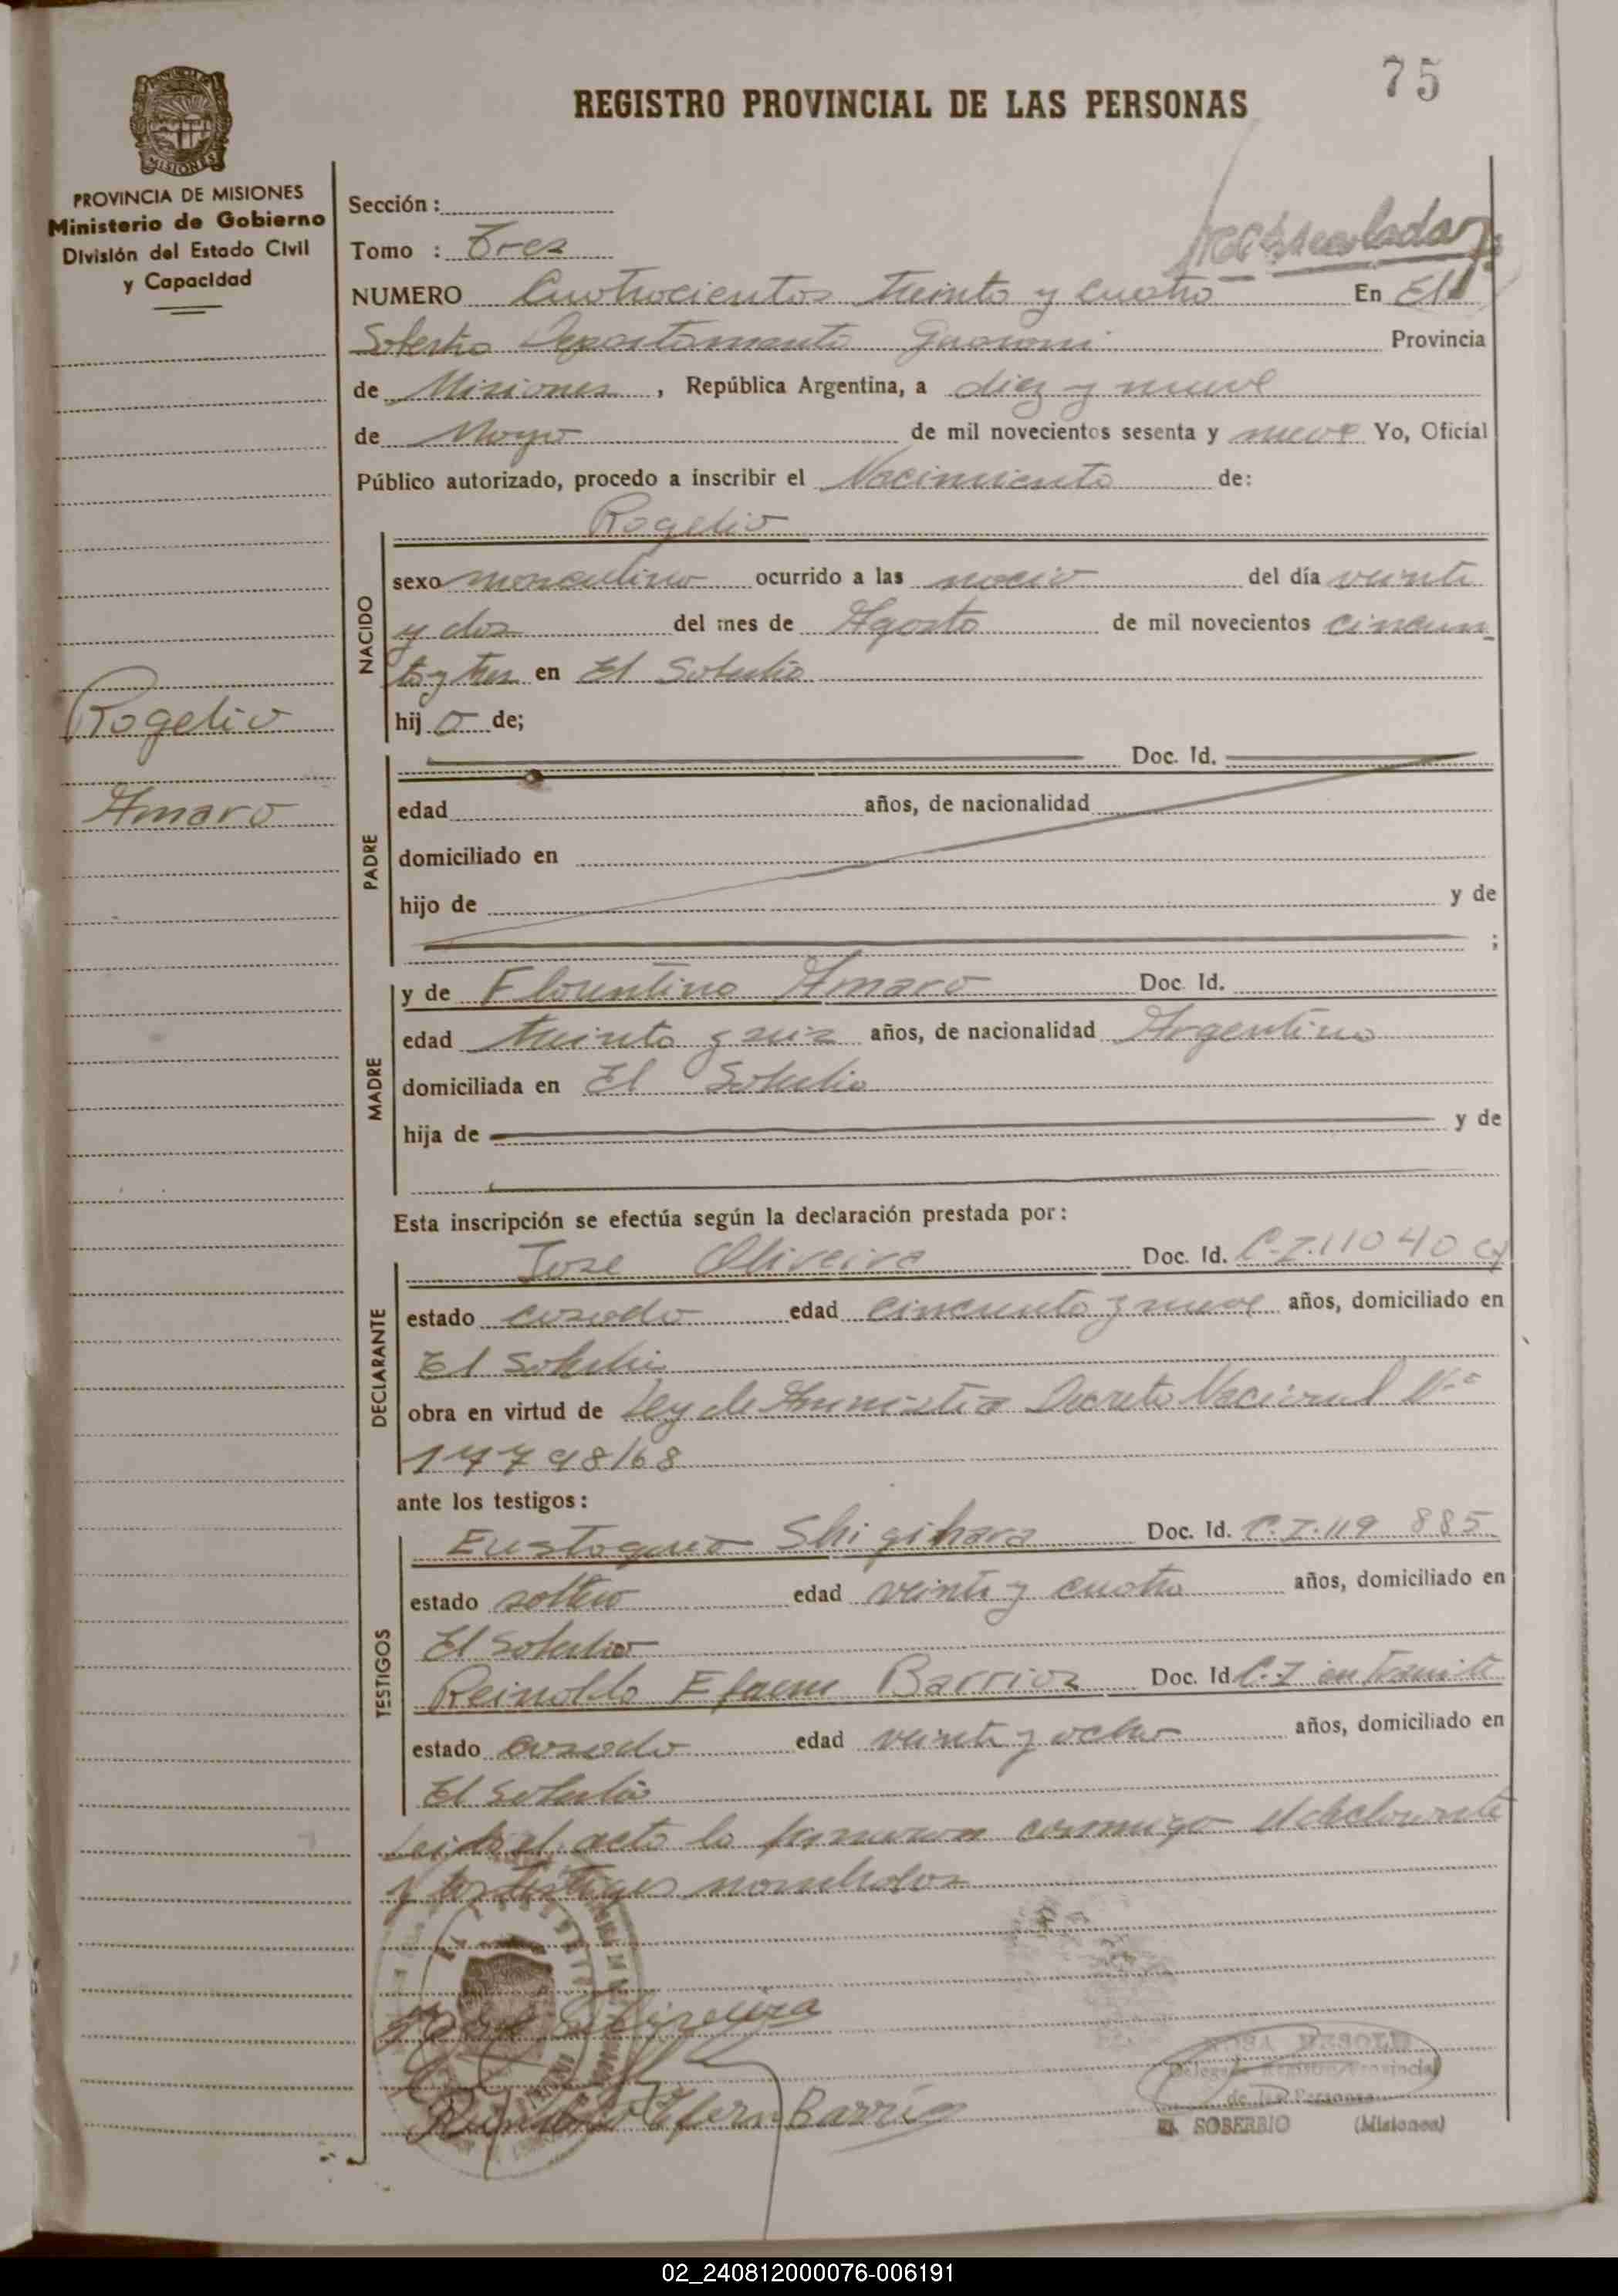 75
REGISTRO PROVINCIAL DE LAS PERSONAS
MISIONES
PROVINCIA DE MISIONES
Ministerio de Gobierno
División del Estado Civil
y Capacidad
Sección :
Tomo : Tres
NUMERO Cuatrocientos treinta y cuatro En El
Soberbio Departamento Guarani Provincia
de Misiones, República Argentina, a diez y nueve
de Mayo de mil novecientos sesenta y nueve Yo, Oficial
Público autorizado, procedo a inscribir el Nacimiento de:
NACIDO
Rogelio
sexo masculino ocurrido a las del día veinte
y dos del mes de Agosto de mil novecientos cincuen
ta y tres en El Soberbio
hij o de;
Rogelio
Amaro
PADRE
Doc. Id.
edad años, de nacionalidad
domiciliado en
hijo de y de
;
MADRE
y de Florentina Amaro Doc. Id.
edad treinta y seis años, de nacionalidad Argentina
domiciliada en El Soberbio
hija de y de
Esta inscripción se efectúa según la declaración prestada por:
DECLARANTE
Jose Oliveira Doc. Id. C.I. 11040
estado casado edad cincuenta y nueve años, domiciliado en
El Soberbio
obra en virtud de Ley de Amnistia Decreto Nacional Nº
17798/68
ante los testigos:
TESTIGOS
Eustaquio Shigihara Doc. Id. C.I. 119 885
estado soltero edad veinte y cuatro años, domiciliado en
El Soberbio
Reinoldo Efaern Barrios Doc. Id C.I en tramite
estado casado edad veinte y ocho años, domiciliado en
El Soberbio
Leida el acta la firmaron conmigo el declarante
y los testigos nombrados
Barrios
Delegada Registro Provincial
de las Personas
EL SOBERBIO (Misiones)
02_240812000076-006191